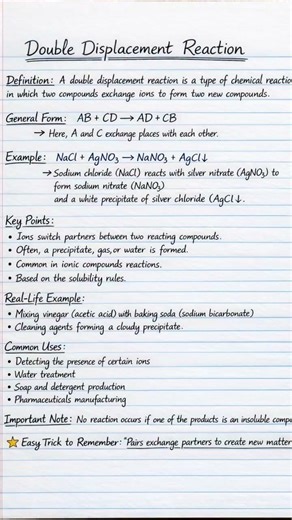 Double Displacement Reaction
Definition: A double displacement reaction is a type of chemical reaction
in which two compounds exchange ions to form two new compounds.
General Form: AB + CD → AD + CB
→ Here, A and C exchange places with each other.
Example: NaCl + AgNO₃ → NaNO₃ + AgCl↓
→ Sodium chloride (NaCl) reacts with silver nitrate (AgNO₃) to
form sodium nitrate (NaNO₃)
and a white precipitate of silver chloride (AgCl↓.
Key Points:
• Ions switch partners between two reacting compounds.
• Often, a precipitate, gas, or water is formed.
• Common in ionic compounds reactions.
• Based on the solubility rules.
Real-Life Example:
• Mixing vinegar (acetic acid) with baking soda (sodium bicarbonate)
• Cleaning agents forming a cloudy precipitate.
Common Uses:
• Detecting the presence of certain ions
• Water treatment
• Soap and detergent production
• Pharmaceuticals manufacturing
Important Note: No reaction occurs if one of the products is an insoluble compo
⭐ Easy Trick to Remember: "Pairs exchange partners to create new matter